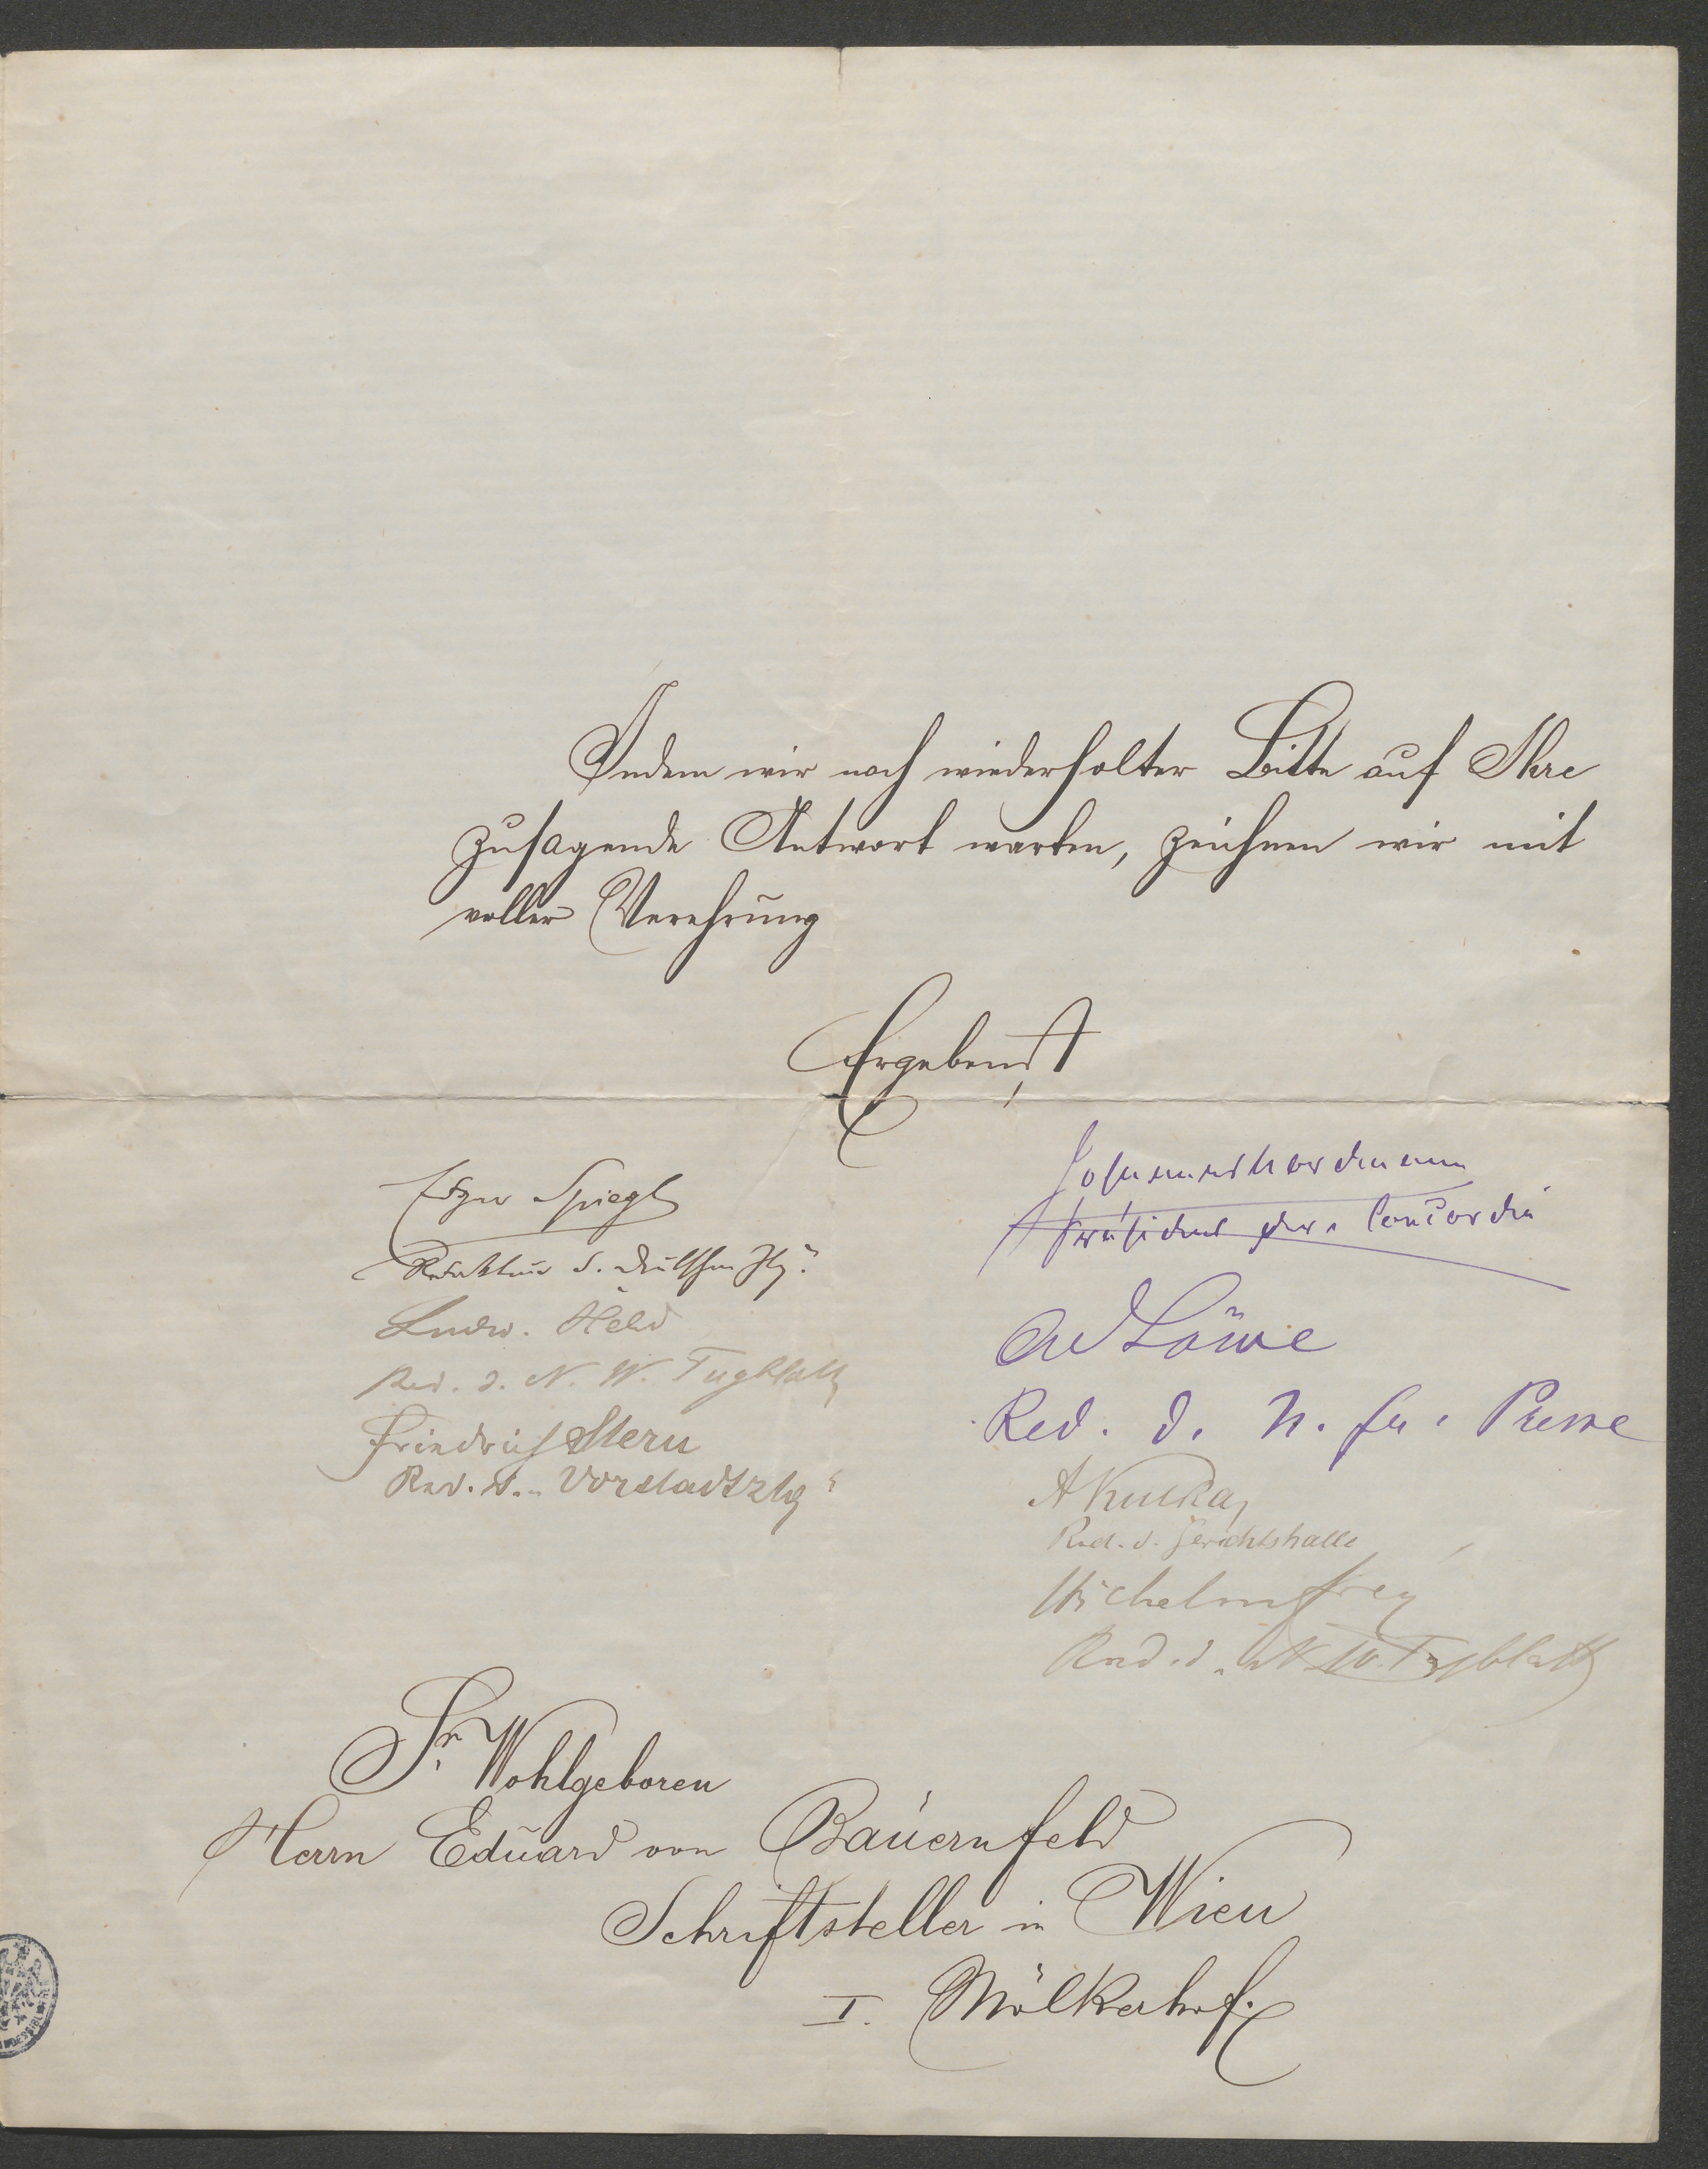 Indem wir nach wiederholter Bitte auf Ihre
zusagende Antwort warten, zeichnen wir mit
voller Verehrung
Ergebenst
Edgar Spiegl
Redakteur d. Deutschen Ztg.
Ludw. Held
Red. d. N. W. Tagblatt
Friedrich Stern
Red. d. Vorstadtztg
Johannes Nordmann
Präsident der Concordia
Löwe
Red. d. N. fr. Presse
A Kulka
Red. d. Gerichtshalle
Wilhelm Frey
Red. d. N. W. Tagblatt
Sr. Wohlgeboren
Herrn Eduard von Bauernfeld
Schriftsteller in Wien
I. Mölkerhof.